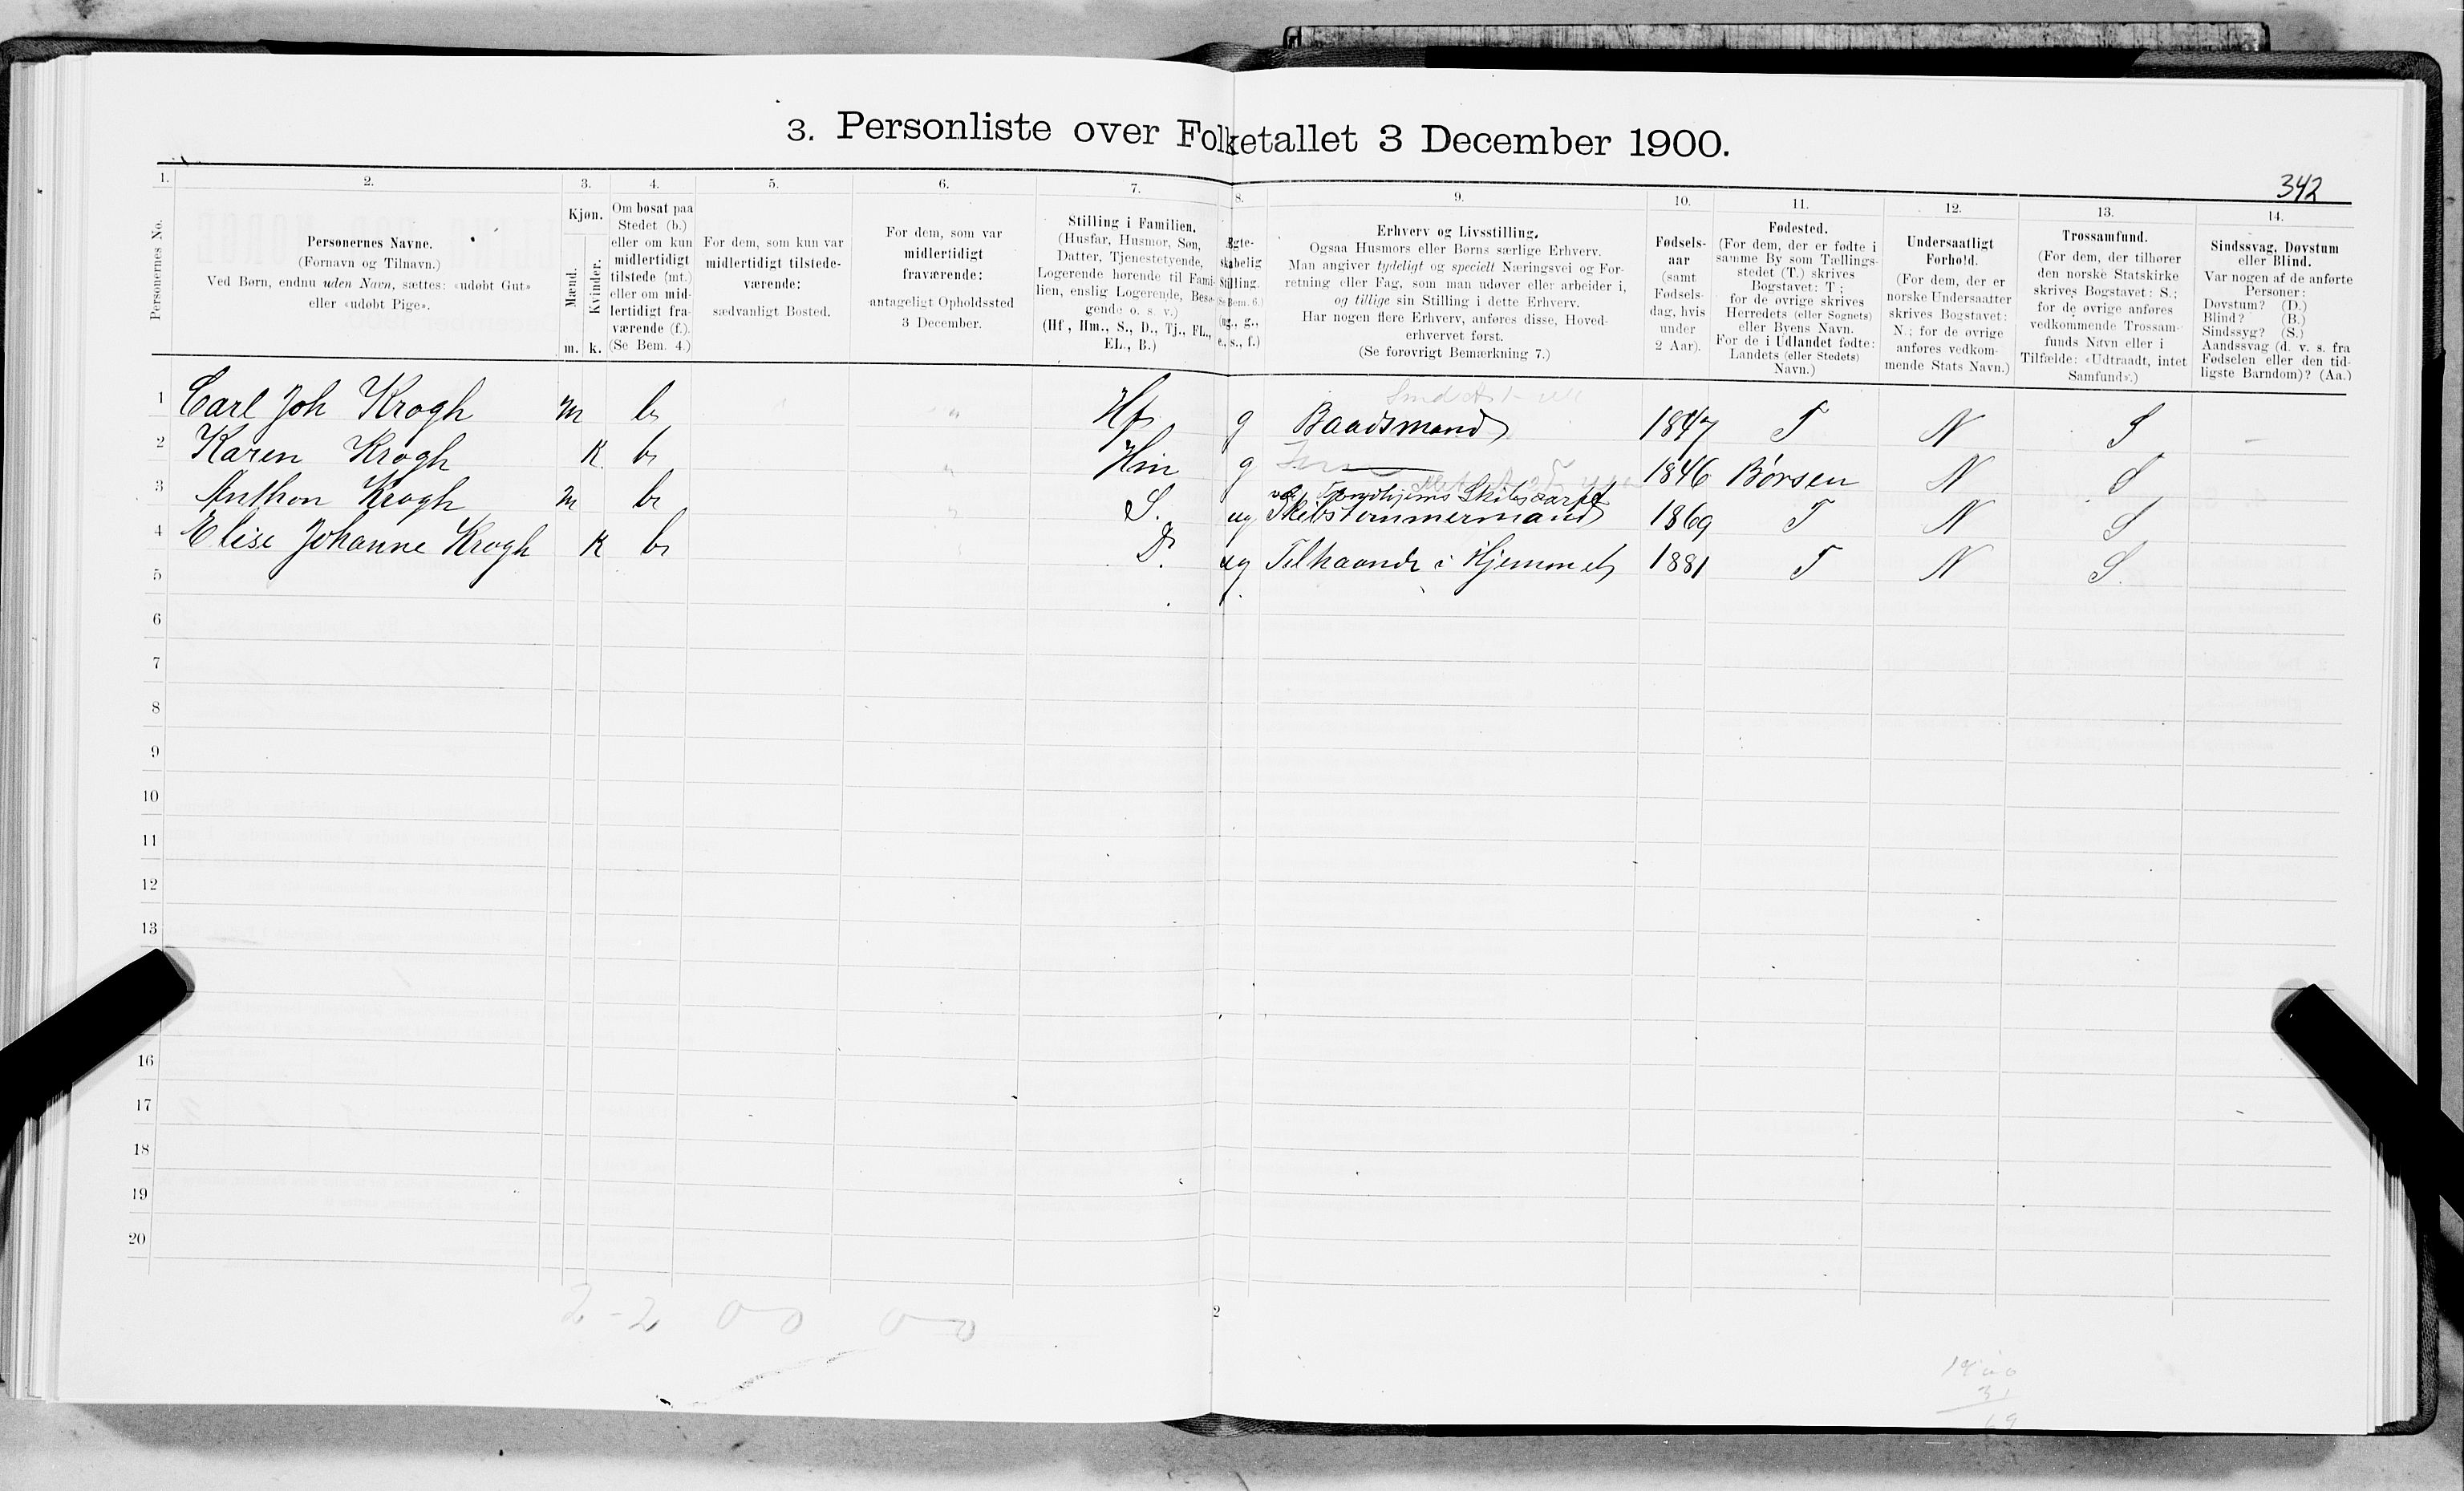 3. Personliste over Folketallet 3 December 1900.
342
1. 2. 3. 4. 5. 6. 7. 8. 9. 10. 11. 12. 13. 14.
Personernes No.
Personernes Navne.
(Fornavn og Tilnavn.)
Ved Børn, endnu uden Navn, sættes: «udøbt Gut»
eller «udøbt Pige».
Kjøn.
Mænd.
Kvinder.
m. k.
Om bosat paa
Stedet (b.)
eller om kun
midlertidigt
tilstede (mt.)
eller om mid-
lertidigt fra-
værende (f.).
(Se Bem. 4.)
For dem, som kun var
midlertidigt tilstede-
værende:
sædvanligt Bosted.
For dem, som var
midlertidigt
fraværende:
antageligt Opholdssted
3 December.
Stilling i Familien.
(Husfar, Husmor, Søn,
Datter, Tjenestetyende,
Logerende hørende til Fami-
lien, enslig Logerende, Besø-
gende o. s. v.)
(Hf, Hm., S., D., Tj., FL.,
EL., B.)
Ægte-
skabelig
Stilling.
(Se Bem. 6.)
(ug., g.,
e., s., f.)
Erhverv og Livsstilling.
Ogsaa Husmors eller Børns særlige Erhverv.
Man angiver tydeligt og specielt Næringsvei og For-
retning eller Fag, som man udøver eller arbeider i,
og tillige sin Stilling i dette Erhverv.
Har nogen flere Erhverv, anføres disse, Hoved-
erhvervet først.
(Se forøvrigt Bemærkning 7.)
Fødsels-
aar
(samt
Fødsels-
dag, hvis
under
2 Aar).
Fødested.
(For dem, der er fødte i
samme By som Tællings-
stedet (T.) skrives
Bogstavet: T;
for de øvrige skrives
Herredets (eller Sognets)
eller Byens Navn.
For de i Udlandet fødte:
Landets (eller Stedets)
Navn.)
Undersaatligt
Forhold.
(For dem, der er
norske Undersaatter
skrives Bogstavet:
N.; for de øvrige
anføres vedkom-
mende Stats Navn.)
Trossamfund.
(For dem, der tilhører
den norske Statskirke
skrives Bogstavet: S.;
for de øvrige anføres
vedkommende Trossam-
funds Navn eller i
Tilfælde: «Udtraadt, intet
Samfund».)
Sindssvag, Døvstum
eller Blind.
Var nogen af de anførte
Personer:
Døvstum? (D.)
Blind? (B.)
Sindssyg? (S.)
Aandssvag (d. v. s. fra
Fødselen eller den tid-
ligste Barndom)? (Aa.)
1 Carl Joh Krogh m b Hf g Baadsmand 1847 T N S
2 Karen Krogh k b Hm g 1846 Børsen N S
ved Trondhjems Skibsværft
3 Anthon Krogh m b S. ug Skibstømmermand 1869 T N S
4 Elise Johanne Krogh k b D. ug Tilhaande i Hjemmet 1881 T N S.
5
6
7
8
9
10
11
12
13
16
17
18
19
20
2-2 0 0 0 0
2
1900
31
69